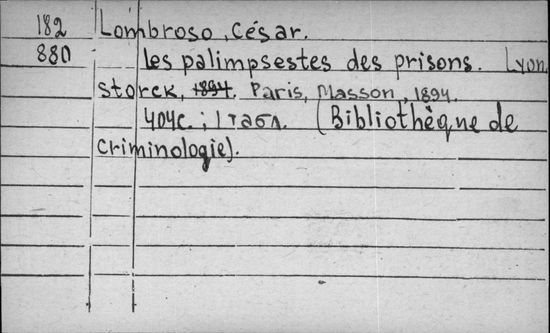 182 Lombroso, César.
880 Les palimpsestes des prisons. Lyon,
Storck, 1894. Paris, Masson, 1894.
404с.; 1 табл. (Bibliothèque de
Criminologie).